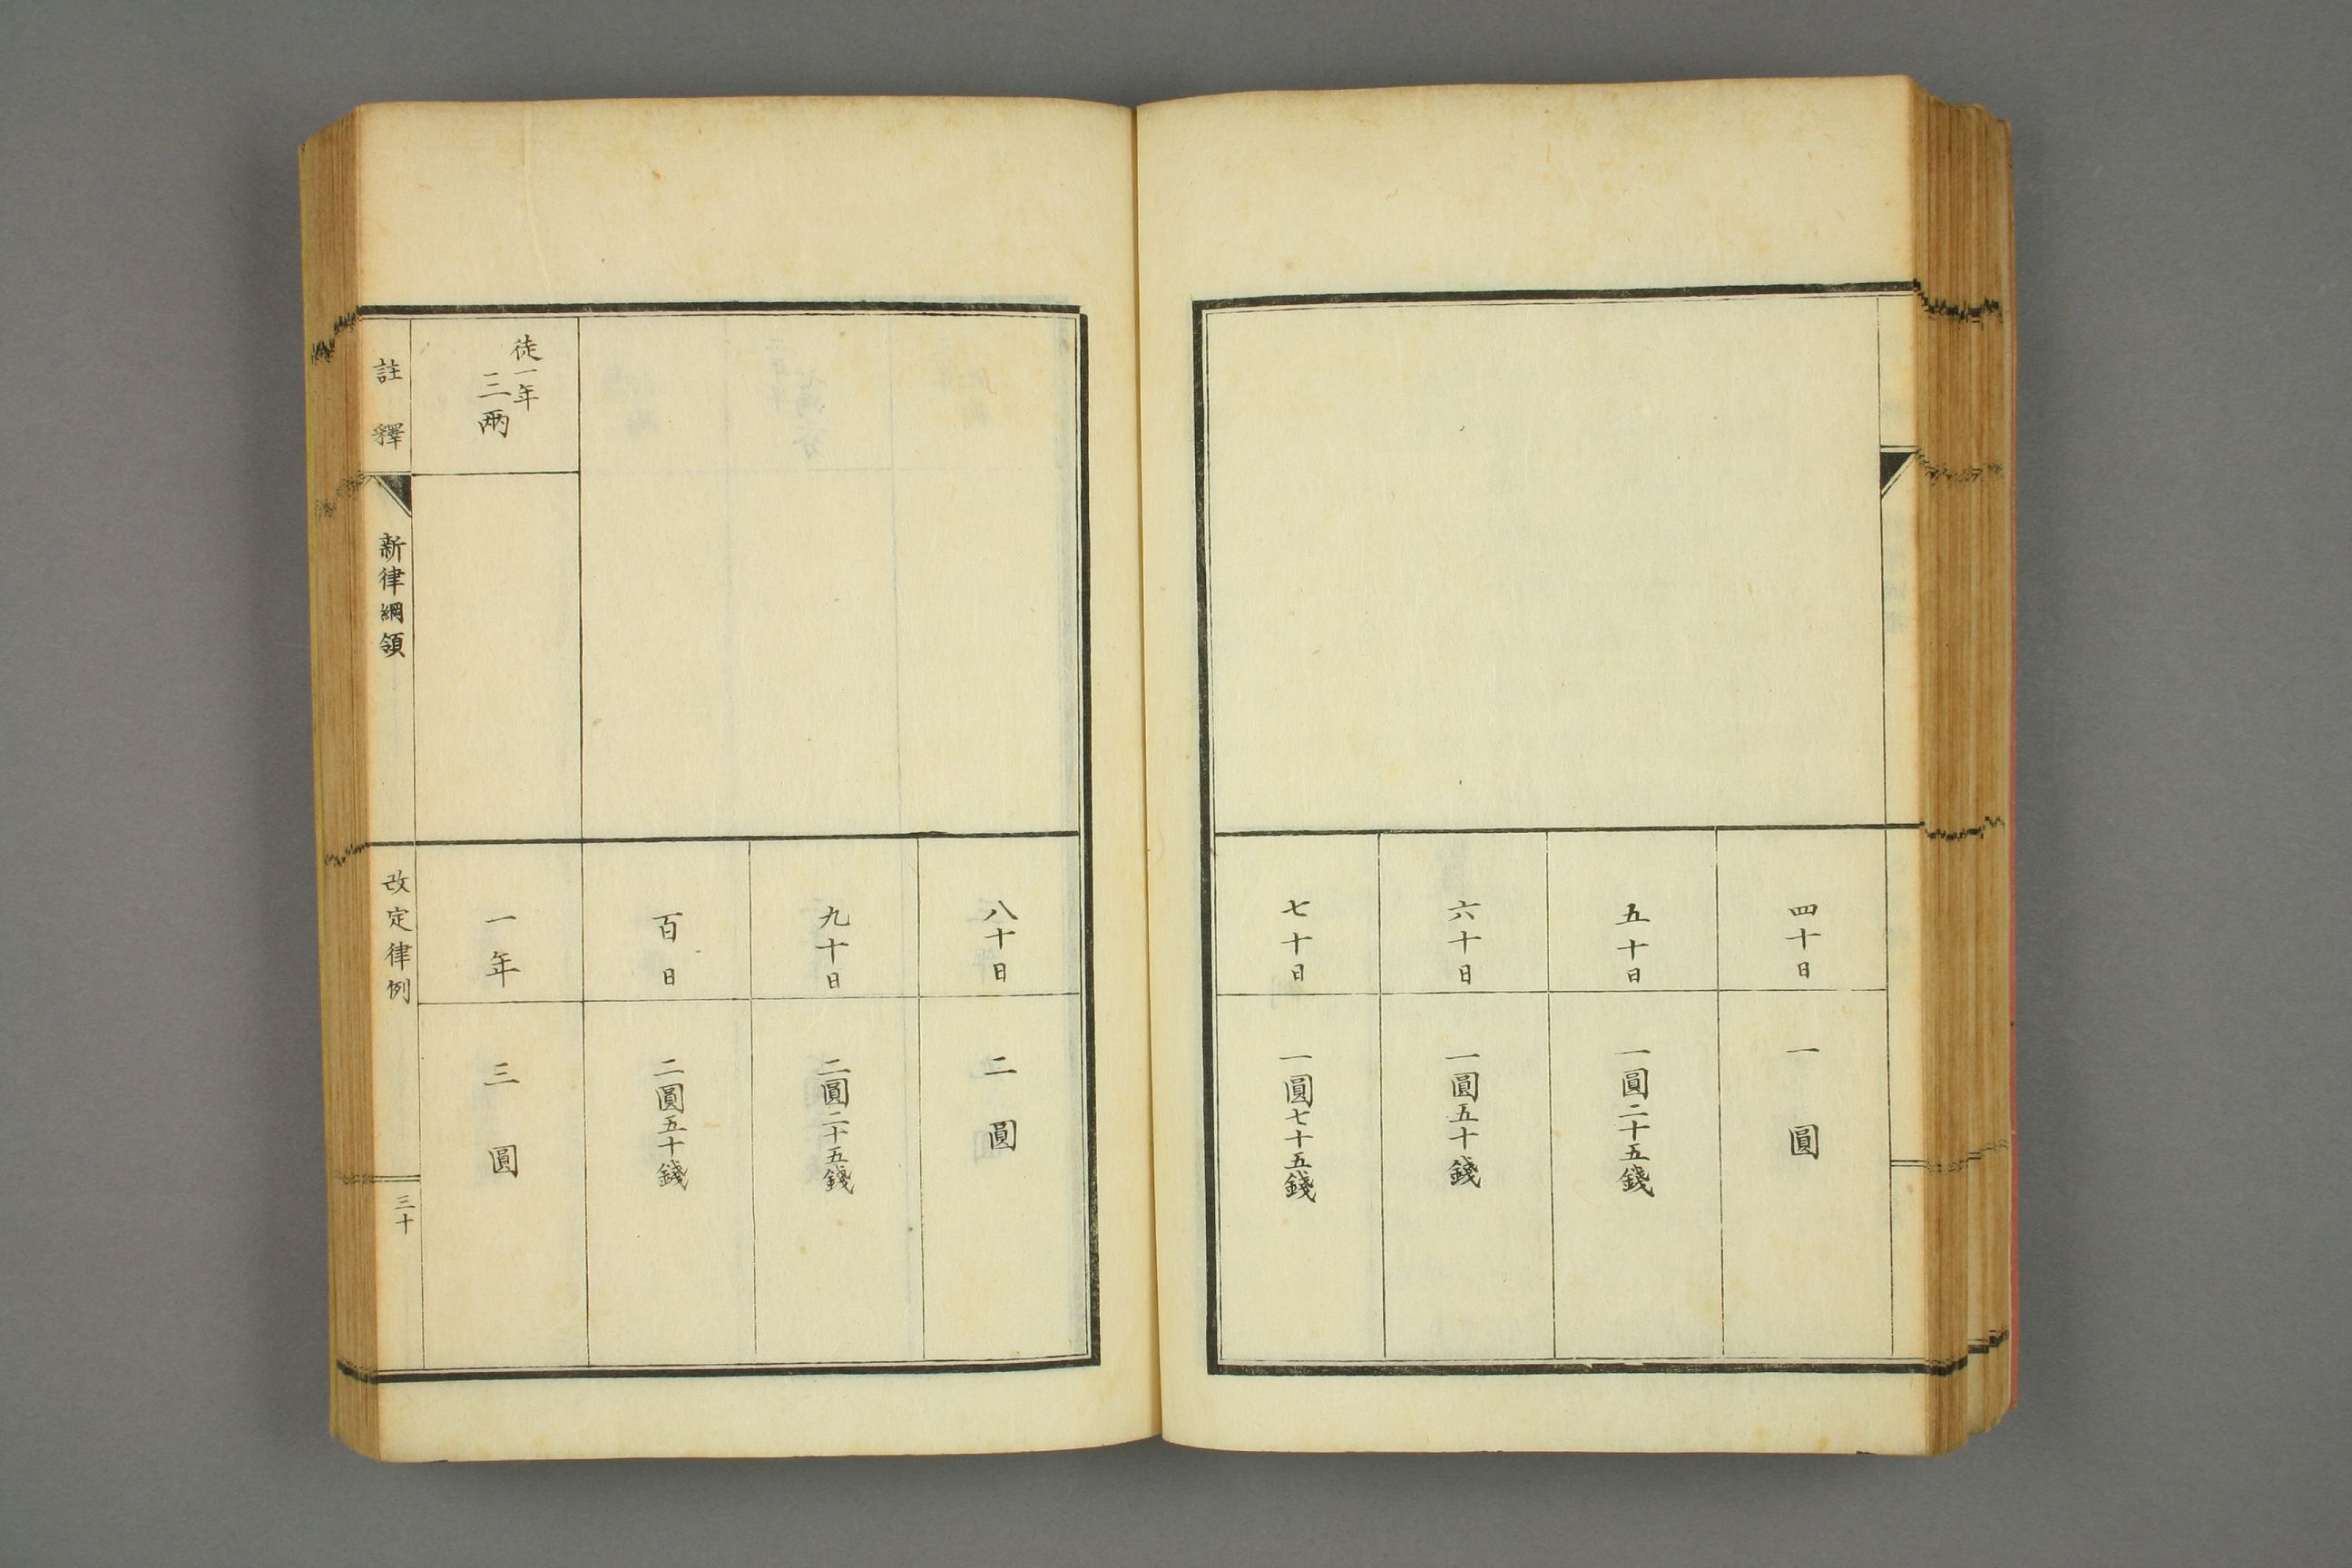 四十日
一圓
五十日
一圓二十五錢
六十日
一圓五十錢
七十日
一圓七十五錢
八十日
二圓
九十日
二圓二十五錢
百日
二圓五十錢
徒一年
三兩
一年
三圓
註釋
新律綱領
改定律例
三十